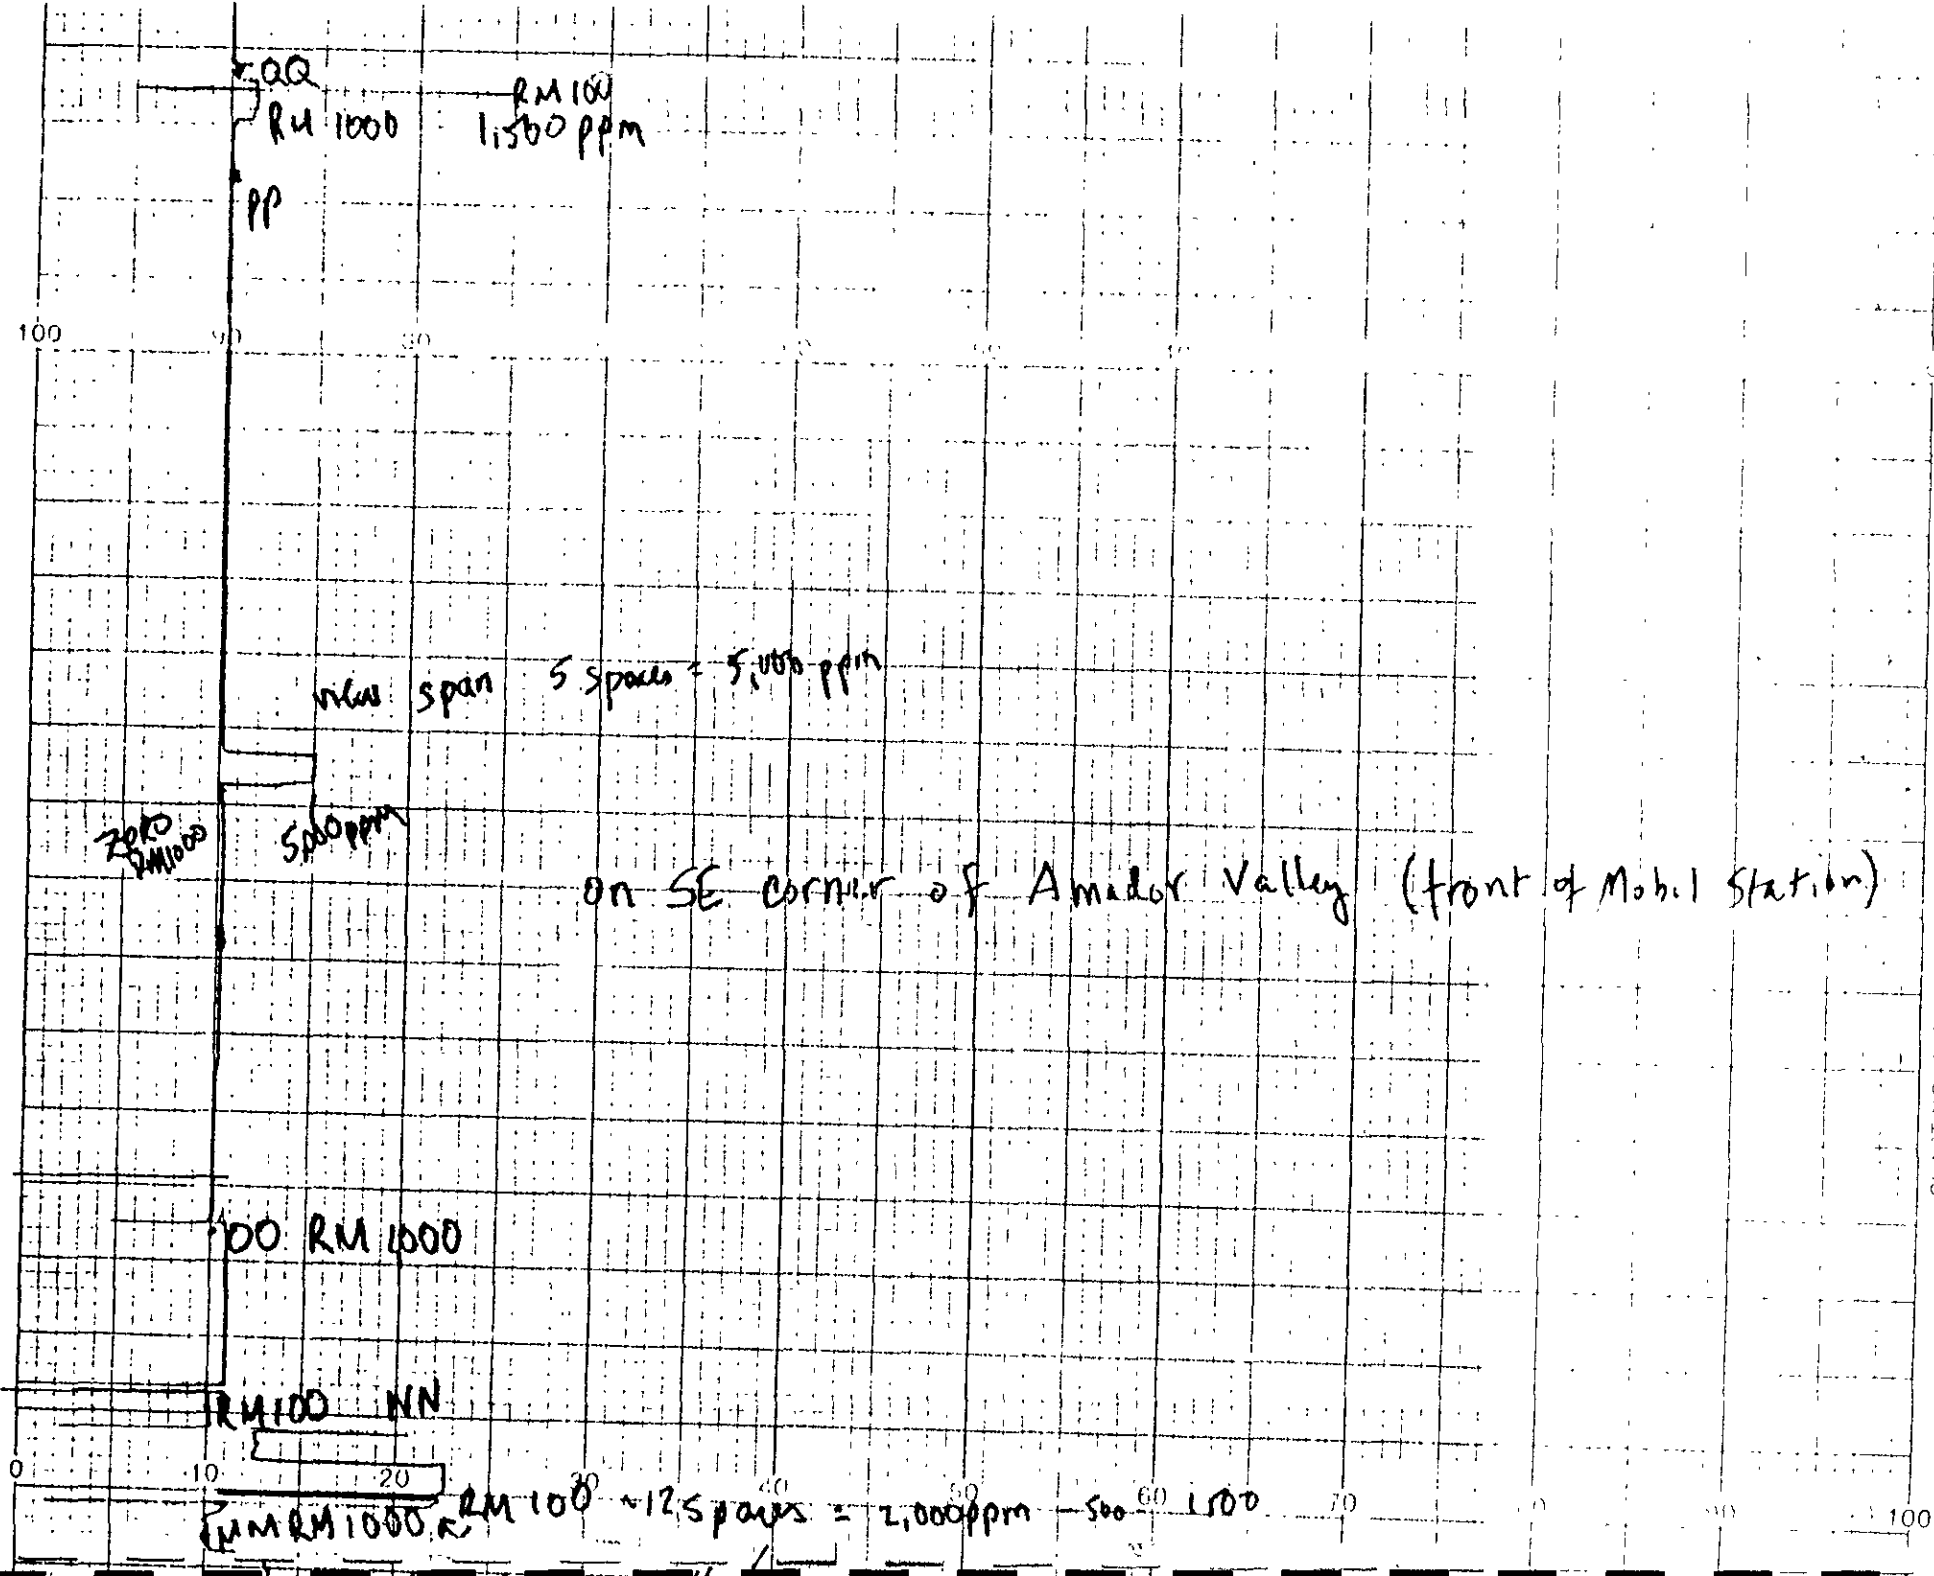 QQ
RM 100
RM 1000 1,500 ppm
PP
100 90 80
view span 5 spaces = 5,000 ppm
zero
RM1000
5,000 ppm
on SE corner of Amador Valley (front of Mobil Station)
OO RM 1000
RM100 NN
0 10 20 30 40 50 60 70 100
MM RM1000 RM 100 ~12 spaces = 2,000ppm - 500 1500